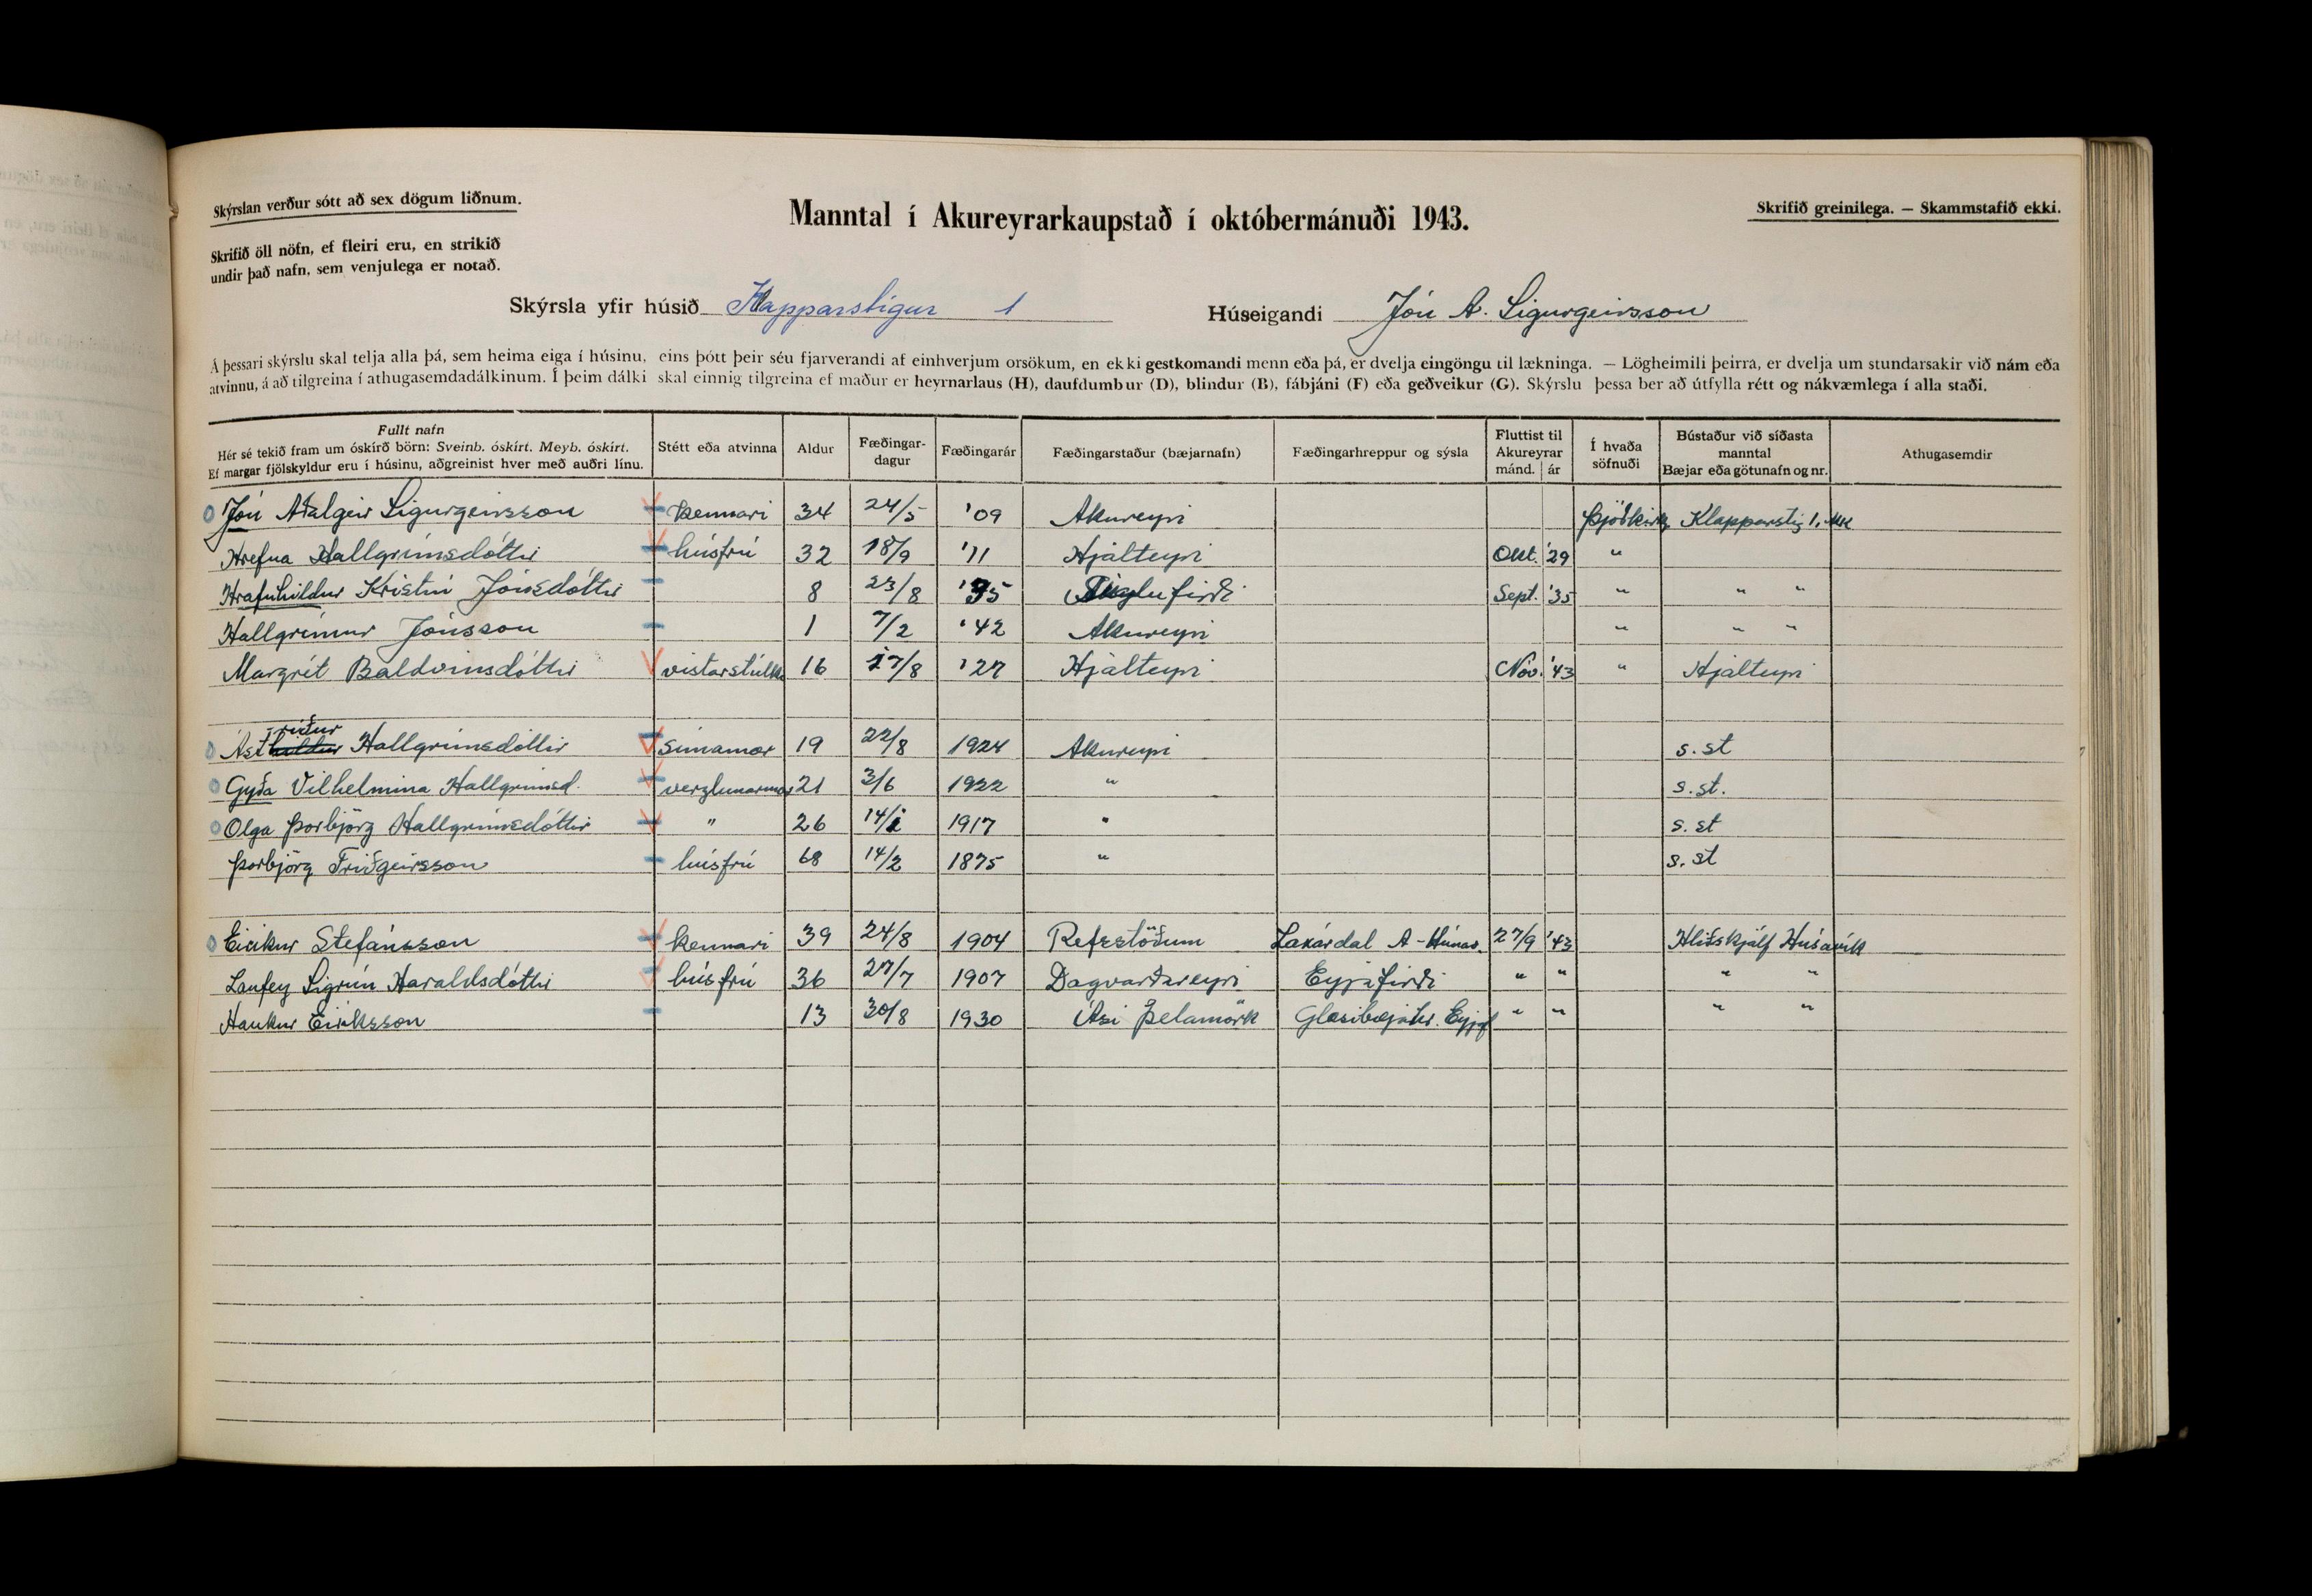 Skýrslan verður sótt að sex dögum liðnum.
Manntal í Akureyrarkaupstað í októbermánuði 1943.
Skrifið greinilega. — Skammstafið ekki.
Skrifið öll nöfn, ef fleiri eru, en strikið
undir það nafn, sem venjulega er notað.
Skýrsla yfir húsið Klapparstígur 1 Húseigandi Jón A. Sigurgeirsson
Á þessari skýrslu skal telja alla þá, sem heima eiga í húsinu, eins þótt þeir séu fjarverandi af einhverjum orsökum, en ekki gestkomandi menn eða þá, er dvelja eingöngu til lækninga. — Lögheimili þeirra, er dvelja um stundarsakir við nám eða
atvinnu, á að tilgreina í athugasemdadálkinum. Í þeim dálki skal einnig tilgreina ef maður er heyrnarlaus (H), daufdumbur (D), blindur (B), fábjáni (F) eða geðveikur (G). Skýrslu þessa ber að útfylla rétt og nákvæmlega í alla staði.
Fullt nafn
Hér sé tekið fram um óskírð börn: Sveinb. óskírt. Meyb. óskírt.
Ef margar fjölskyldur eru í húsinu, aðgreinist hver með auðri línu.
Stétt eða atvinna
Aldur
Fæðingar-
dagur
Fæðingarár
Fæðingarstaður (bæjarnafn)
Fæðingarhreppur og sýsla
Fluttist til
Akureyrar
mánd. ár
Í hvaða
söfnuði
Bústaður við síðasta
manntal
Bæjar eða götunafn og nr.
Athugasemdir
Jón Aðalgeir Sigurgeirsson kennari 34 24/5 '09 Akureyri Þjóðkirkj Klapparstíg 1, Ak
Hrefna Hallgrímsdóttir húsfrú 32 18/9 '11 Hjalteyri Okt. '29 "
Hrafnhildur Kristín Jónsdóttir 8 23/8 '35 Siglufirði Sept. '35 " " "
Hallgrímur Jónsson 1 7/2 '42 Akureyri " " "
Margrét Baldvinsdóttir vistarstúlka 16 17/8 '27 Hjalteyri Nóv. '43 " Hjalteyri
Ástríður Hallgrímsdóttir símamær 19 22/8 1924 Akureyri s. st
Gyða Vilhelmína Hallgrímsd. verzlunarmær 21 3/6 1922 " s. st.
Olga Þorbjörg Hallgrímsdóttir " 26 14/1 1917 " s. st
Þorbjörg Friðgeirsson húsfrú 68 14/2 1875 " s. st
Eiríkur Stefánsson kennari 39 24/8 1904 Refsstöðum Laxárdal A-Húnav. 27/9 '43 Hliðskjálf Húsavík
Laufey Sigrún Haraldsdóttir húsfrú 36 27/7 1907 Dagverðareyri Eyjafirði " " " "
Haukur Eiríksson 13 30/8 1930 Ási Þelamörk Glæsibæjarhr. Eyjaf " " " "